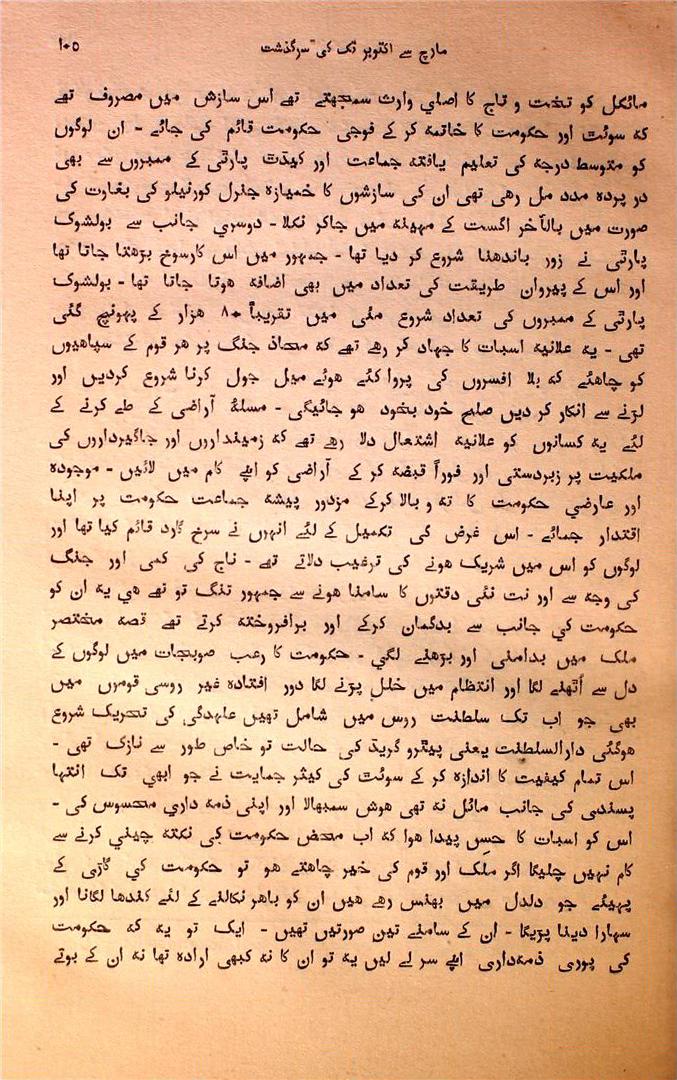 مارچ سے اکتوبر تک کی سرگذشت ۱۰۵
مائکل کو تخت و تاج کا اصلي وارث سمجھتے تھے اس سازش میں مصروف تھے
کہ سوئٹ اور حکومت کا خاتمہ کر کے فوجی حکومت قائم کی جائے - ان لوگوں
کو متوسط درجہ کی تعلیم یافتہ جماعت اور کیڈٹ پارٹی کے ممبروں سے بھی
در پردہ مدد مل رهی تھی ان کی سازشوں کا خمیازہ جنرل کورنیلو کی بغاوت کی
صورت میں بالآخر اگست کے مہینہ میں جاکر نکلا - دوسري جانب سے بولشوک
پارٹی نے زور باندھنا شروع کر دیا تھا - جمہور میں اس کارسوخ بڑھتا جاتا تھا
اور اس کے پیروان طریقت کی تعداد میں بھی اضافہ هوتا جاتا تھا - بولشوک
پارٹی کے ممبروں کی تعداد شروع مئی میں تقریباً ۸۰ هزار کے پہونچ گئی
تھی - یہ علانیہ اسبات کا جہاد کر رهے تھے کہ محاذ جنگ پر هر قوم کے سپاهیوں
کو چاهئے کہ بلا افسروں کی پروا کئے هوئے میل جول کرنا شروع کردیں اور
لڑنے سے انکار کر دیں صلح خود بخود هو جائیگی - مسلۂ آراضی کے طے کرنے کے
لئے یہ کسانوں کو علانیہ اشتعال دلا رهے تھے کہ زمینداروں اور جاگیرداروں کی
ملکیت پر زبردستی اور فوراً قبضہ کر کے آراضی کو اپنے کام میں لائیں - موجودہ
اور عارضي حکومت کا تہ و بالا کرکے مزدور پیشہ جماعت حکومت پر اپنا
اقتدار جمائے - اس غرض کی تکمیل کے لئے انہوں نے سرخ گارد قائم کیا تھا اور
لوگوں کو اس میں شریک هونے کی ترغیب دلاتے تھے - ناج کی کمی اور جنگ
کی وجہ سے اور نت نئی دقتوں کا سامنا هونے سے جمہور تنگ تو تھے هي یہ ان کو
حکومت کي جانب سے بدگمان کرکے اور برافروختہ کرتے تھے قصہ مختصر
ملک میں بدامنی اور بڑھنے لگي - حکومت کا رعب صوبجات میں لوگوں کے
دل سے اُٹھنے لگا اور انتظام میں خلل پڑنے لگا دور افتادہ غیر روسی قوموں میں
بھی جو اب تک سلطنت روس میں شامل تھیں علحدگی کی تحریک شروع
هوگئی دارالسلطنت یعنی پیٹرو گریڈ کی حالت تو خاص طور سے نازک تھی -
اس تمام کیفیت کا اندازہ کر کے سوئٹ کی کیثر جمایت نے جو ابھی تک انتہا
پسندی کی جانب مائل نہ تھی هوش سمبھالا اور اپنی ذمہ داري محسوس کی -
اس کو اسبات کا حس پیدا هوا کہ اب محض حکومت کی نکتہ چیني کرنے سے
کام نہیں چلیگا اگر ملک اور قوم کی خیر چاهتے هو تو حکومت کي گاڑی کے
پہیئے جو دلدل میں پھنس رهے هیں ان کو باهر نکالنے کے لئے کندھا لگانا اور
سہارا دینا پڑیگا - ان کے سامنے تین صورتیں تھیں - ایک تو یہ کہ حکومت
کی پوري ذمہداری اپنے سر لے لیں یہ تو ان کا نہ کبھی ارادہ تھا نہ ان کے بوتے